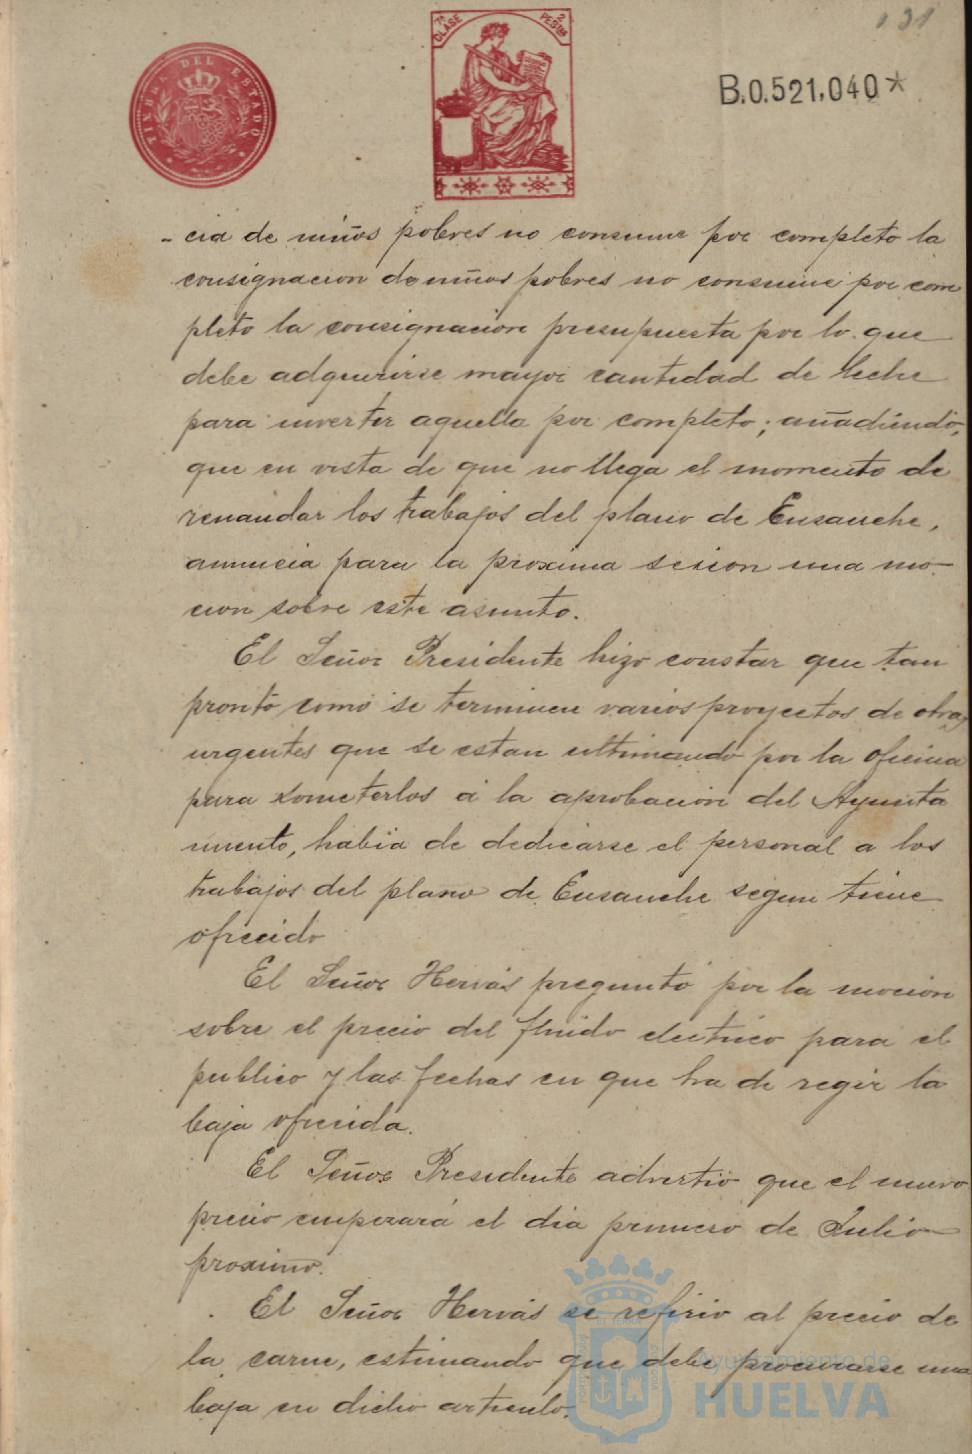 131
TIMBRE DEL ESTADO
7ª CLASE
2 PESTAS
B.0.521,040*
-cia de niños pobres no consume por completo la
consignacion de niños pobres no consume por com
pleto la consignacion presupuesta por lo que
debe adquirirse mayor cantidad de leche
para invertir aquella por completo; añadiendo,
que en vista de que no llega el momento de
renaudar los trabajos del plano de Ensanche,
anuncia para la proxima sesion una mo-
cion sobre este asunto.
El Señor Presidente hizo constar que tan
pronto como se terminen varios proyectos de obras
urgentes que se estan ultimando por la oficina
para someterlos á la aprobacion del Ayunta
miento, habia de dedicarse el personal a los
trabajos del plano de Ensanche segun tiene
ofrecido
El Señor Hervás preguntó por la mocion
sobre el precio del fluido electrico para el
publico y las fechas en que ha de regir la
baja ofrecida.
El Señor Presidente advirtió que el nuevo
precio empezará el dia primero de Julio
proximo.
El Señor Hervás se refirio al precio de
la carne, estimando que debe procurarse una
baja en dicho articulo.
Ayuntamiento de
HUELVA